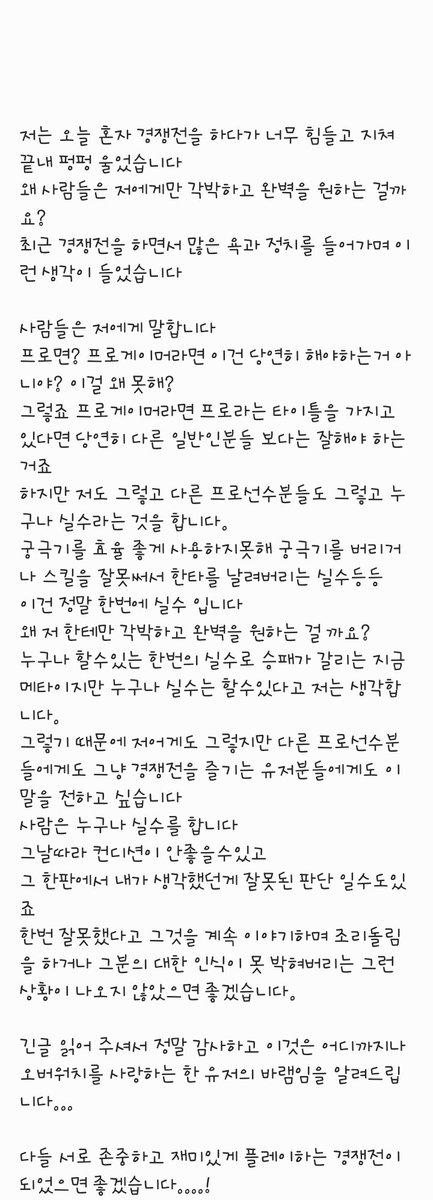 저는 오늘 혼자 경쟁전을 하다가 너무 힘들고 지쳐
끝내 펑펑 울었습니다
왜 사람들은 저에게만 각박하고 완벽을 원하는 걸까
요?
최근 경쟁전을 하면서 많은 욕과 정치를 들어가며 이
런 생각이 들었습니다
사람들은 저에게 말합니다
프로면? 프로게이머라면 이건 당연히 해야하는거 아
니야? 이걸 왜 못해?
그렇죠 프로게이머라면 프로라는 타이틀을 가지고
있다면 당연히 다른 일반인분들 보다는 잘해야 하는
거죠
하지만 저도 그렇고 다른 프로선수분들도 그렇고 누
구나 실수라는 것을 합니다.
궁극기를 효율 좋게 사용하지못해 궁극기를 버리거
나 스킬을 잘못써서 한타를 날려버리는 실수등등
이건 정말 한번에 실수 입니다
왜 저 한테만 각박하고 완벽을 원하는 걸 까요?
누구나 할수있는 한번의 실수로 승패가 갈리는 지금
메타이지만 누구나 실수는 할수있다고 저는 생각합
니다.
그렇기 때문에 저어게도 그렇지만 다른 프로선수분
들에게도 그냥 경쟁전을 즐기는 유저분들에게도 이
말을 전하고 싶습니다
사람은 누구나 실수를 합니다
그날따라 컨디션이 안좋을수있고
그 한판에서 내가 생각했던게 잘못된 판단 일수도있
죠
한번 잘못했다고 그것을 계속 이야기하며 조리돌림
을 하거나 그분의 대한 인식이 못 박혀버리는 그런
상황이 나오지 않았으면 좋겠습니다.
긴글 읽어 주셔서 정말 감사하고 이것은 어디까지나
오버워치를 사랑하는 한 유저의 바램임을 알려드립
니다...
다들 서로 존중하고 재미있게 플레이하는 경쟁전이
되었으면 좋겠습니다....!